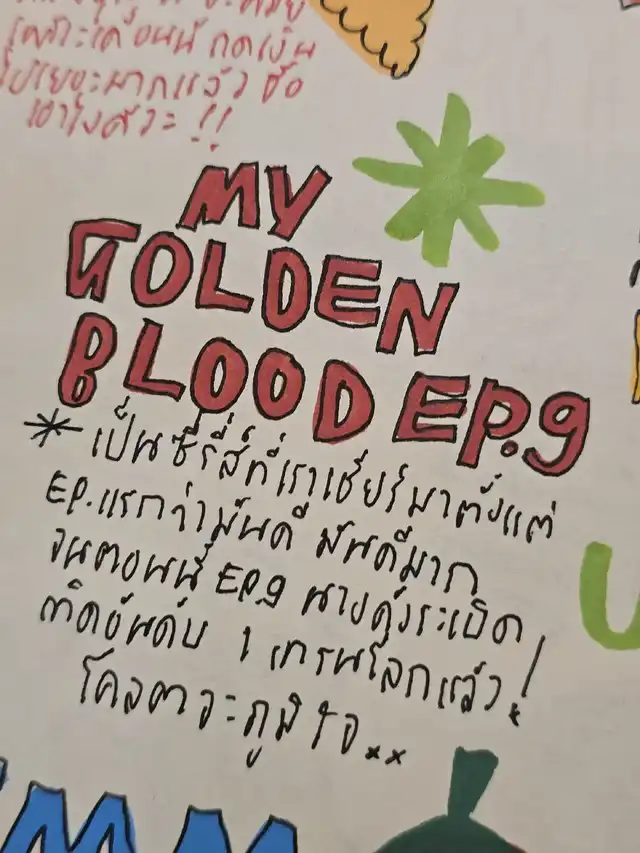 เพราะเดือนนี้ กดเงิน
ไปเยอะมากแล้ว ซื้อ
MY
GOLDEN
BLOOD EP.9
* เป็นซีรี่ส์ที่เราเชียร์มาตั้งแต่
EP.แรกว่ามันดี มันดีมาก
จนตอนนี้ EP.9 นางดังระเบิด
ติดอันดับ 1 เทรนโลกแล้ว!
โคตรจะภูมิใจ..